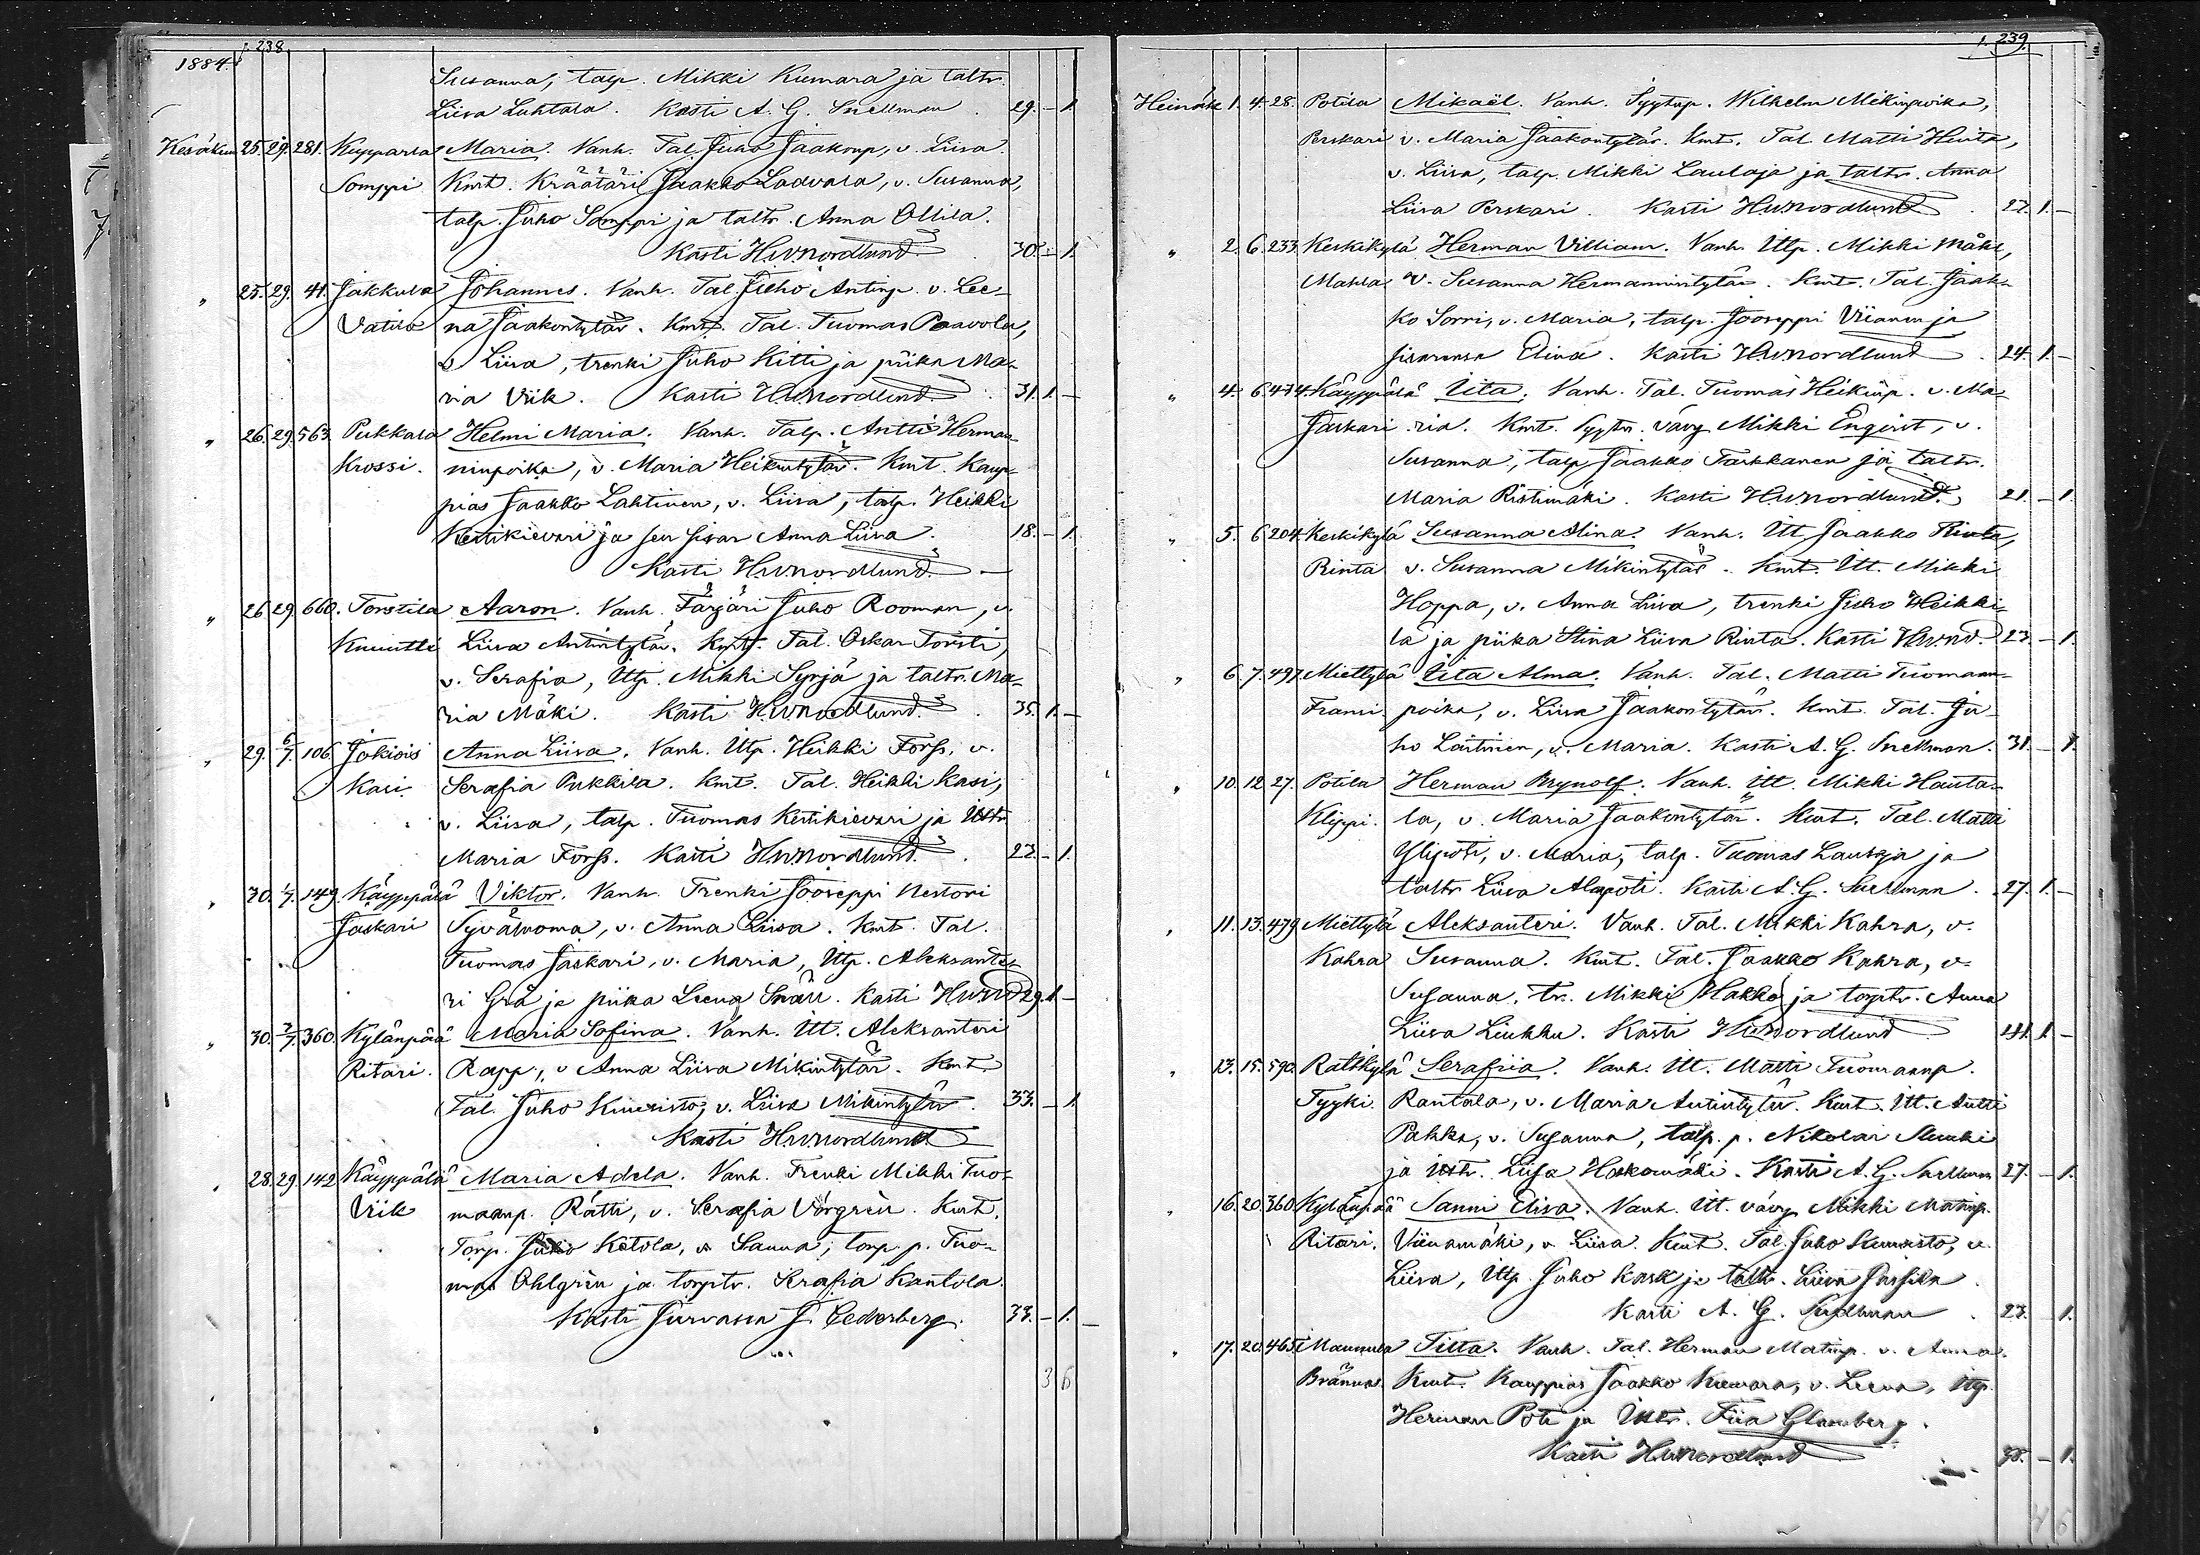 238
1884.
Susanna, talp. Mikki Kiemara ja taltr.
Liisa Luhtala. Kasti A. G. Snellman. 29. – 1.
Kesäkuu 25. 29. 281. Kupparla Maria. Vanh. Tal. Juho Jaakonp., v. Liisa.
Somppi Kmt. Kräätäri Jaakko Ladvala, v. Susanna,
talp. Juho Somppi ja taltr. Anna Ollila.
Kasti HWNordlund. 30. – 1.
" 25. 29. 41. Jakkula Johannes. Vanh. Tal. Juho Antinp. v. Lee-
Vatilo na Jaakontytär. Kmt. Tal. Tuomas Paavola,
v. Liisa, trenki Juho Kitti ja piika Ma-
ria Viik. Kasti HWNordlund. 31. 1. –
" 26. 29. 563. Pukkala Helmi Maria. Vanh. Talp. Antti Herman-
Krossi. ninpoika, v. Maria Heikintytär. Kmt. Kaup-
pias Jaakko Lahtinen, v. Liisa, talp. Heikki
Kestikievari ja sen sisar Anna Liisa. 18. – 1.
Kasti HWNordlund. –
" 26 29 660. Torstila Aaron. Vanh. Färjäri Juho Rooman, v.
Knuutti Liisa Antintytär. Kmt. Tal. Oskar Torsti,
v. Serafia, Itp. Mikki Syrjä ja taltr. Ma-
ria Mäki. Kasti HWNordlund. 35. 1. –
" 29. 6/7. 106. Jokisis Anna Liisa. Vanh. Itp. Heikki Forss, v.
Kasi. Serafia Pukkila. Kmt. Tal. Heikki Kasi,
v. Liisa, talp. Tuomas Kestikievari ja Ittr.
Maria Forss. Kasti HWNordlund. 27. – 1.
" 30. 149. Käyppälä Viktor. Vanh. Trenki Jooseppi Nestori
Jaskari Syväluoma, v. Anna Liisa. Kmt. Tal.
Tuomas Jaskari, v. Maria, Itp. Aleksante-
ri Grå ja piika Leena Snäll. Kasti HWNd 29. 1. –
" 30. 7/7. 360. Kylänpää Maria Sofina. Vanh. Itt. Aleksanteri
Ritari. Rapp, v Anna Liisa Mikintytär. Kmt.
Tal. Juho Kiviristo, v. Liisa Mikintytär. 33. – 1.
Kasti HWNordlund
" 28. 29. 142 Käyppälä Maria Adela. Vanh. Trenki Mikki Tuo-
Viik maanp. Rätti, v. Serafia Vårgrén. Kmt.
Torp. Juho Ketola, v. Sanna, torp. p. Tuo-
mas Ohlgrén ja torptr. Serafia Kantola.
Kasti Jurvassa J. Cederberg. 33. – 1. –
3 6
239
Heinäk 1. 4. 28. Potila Mikaël. Vanh. Syytinp. Wilhelm Mikinpoika,
Perskari v. Maria Jaakontytär. Kmt. Tal. Matti Heita,
v. Liisa, talp. Mikki Laulaja ja taltr. Anna
Liisa Perskari. Kasti HWNordlund. 27. 1. –
" 2. 6. 233. Keskikylä Herman Villiam. Vanh. Itp. Mikki Måhl,
Makla v. Susanna Hermannintytär. Kmt. Tal. Jaak-
ko Sorri, v. Maria, talp. Jooseppi Viianen ja
sisarensa Elina. Kasti HWNordlund. 24. 1. –
" 4. 6. 474. Käyppälä Iita. Vanh. Tal. Tuomas Heikinp. v. Ma-
Jaskari ria. Kmt. Syytr. vävy Mikki Enqvist, v.
Susanna, talp. Jaakko Tarkkanen ja taltr.
Maria Ristimäki. Kasti HWNordlund. 21. – 1.
" 5. 6 204. Keskikylä Susanna Alina. Vanh. Itt Jaakko Rinta,
Rinta v. Susanna Mikintytär. Kmt. Itt. Mikki
Hoppa, v. Anna Liisa, trenki Juho Heikki-
lä ja piika Stina Liisa Rinta. Kasti HWNd. 23. – 1.
" 6. 7. 497. Miettylä Iita Alma. Vanh. Tal. Matti Tuomaan-
Fransi. poika, v. Liisa Jaakontytär. Kmt. Tal. Ju-
ho Laitinen, v. Maria. Kasti A. G. Snellman. 31. – 1.
" 10. 12. 27. Potila Herman Brynolf. Vanh. Itt. Mikki Hauta-
Klippi. la, v. Maria Jaakontytär. Kmt. Tal. Matti
Ylipoti, v. Maria, talp. Tuomas Laulaja ja
taltr. Liisa Alapoti. Kasti A. G. Snellman. 27. 1. –
" 11. 13. 479 Miettylä Aleksanteri. Vanh. Tal. Mikki Kahra, v.
Kahra Susanna. Kmt. Tal. Jaakko Kahra, v.
Susanna, tr. Mikki Hakko ja torptr. Anna
Liisa Liukku. Kasti HWNordlund 41. 1. –
" 13. 15. 590. Raltkylä Serafiia. Vanh. Itt. Matti Tuomaanp.
Tyyki. Rantala, v. Maria Antintytär. Kmt. Itt. Antti
Pakka, v. Susanna, talp. p. Nikolai
ja Ittr. Liisa Hakomäki. Kasti A. G. Snellman 27. – 1.
" 16. 20. 360. Kylänpää Sanni Elisa. Vanh. Itt. vävy Mikki Matinp.
Ritari. Viinamäki, v. Liisa. Kmt. Tal. Juho Kiviristo, v.
Liisa, Itp. Juho Kask ja taltr. Liisa Passila.
Kasti A. G. Snellman. 23. – 1.
" 17. 20. 465. Maunula Tilta. Vanh. Tal. Herman Matinp. v. Anna.
Brännas. Kmt. Kauppias Jaakko Kiemara, v. Leena, Itp.
Herman Poti ja Ittr. Fiia Glansberg.
Kasti HWNordlund 38. – 1.